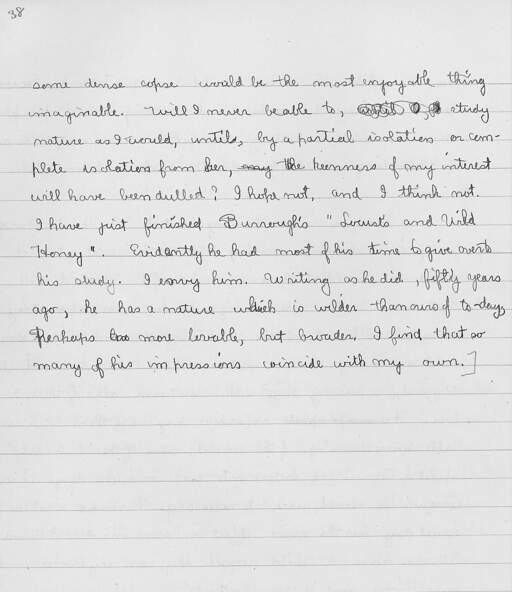 38
some dense copse would be the most enjoyable thing
imaginable. Will I never be able to, study
nature as I would, until, by a partial isolation or com-
plete isolation from her, the keenness of my interest
will have been dulled? I hope not, and I think not.
I have just finished Burrough's "Locusts and Wild
Honey". Evidently he had most of his time to give over to
his study. I envy him. Writing as he did, fifty years
ago, he has a nature which is wilder than ours of to-day,
Perhaps more lovable, but broader. I find that so
many of his impressions coincide with my own.]